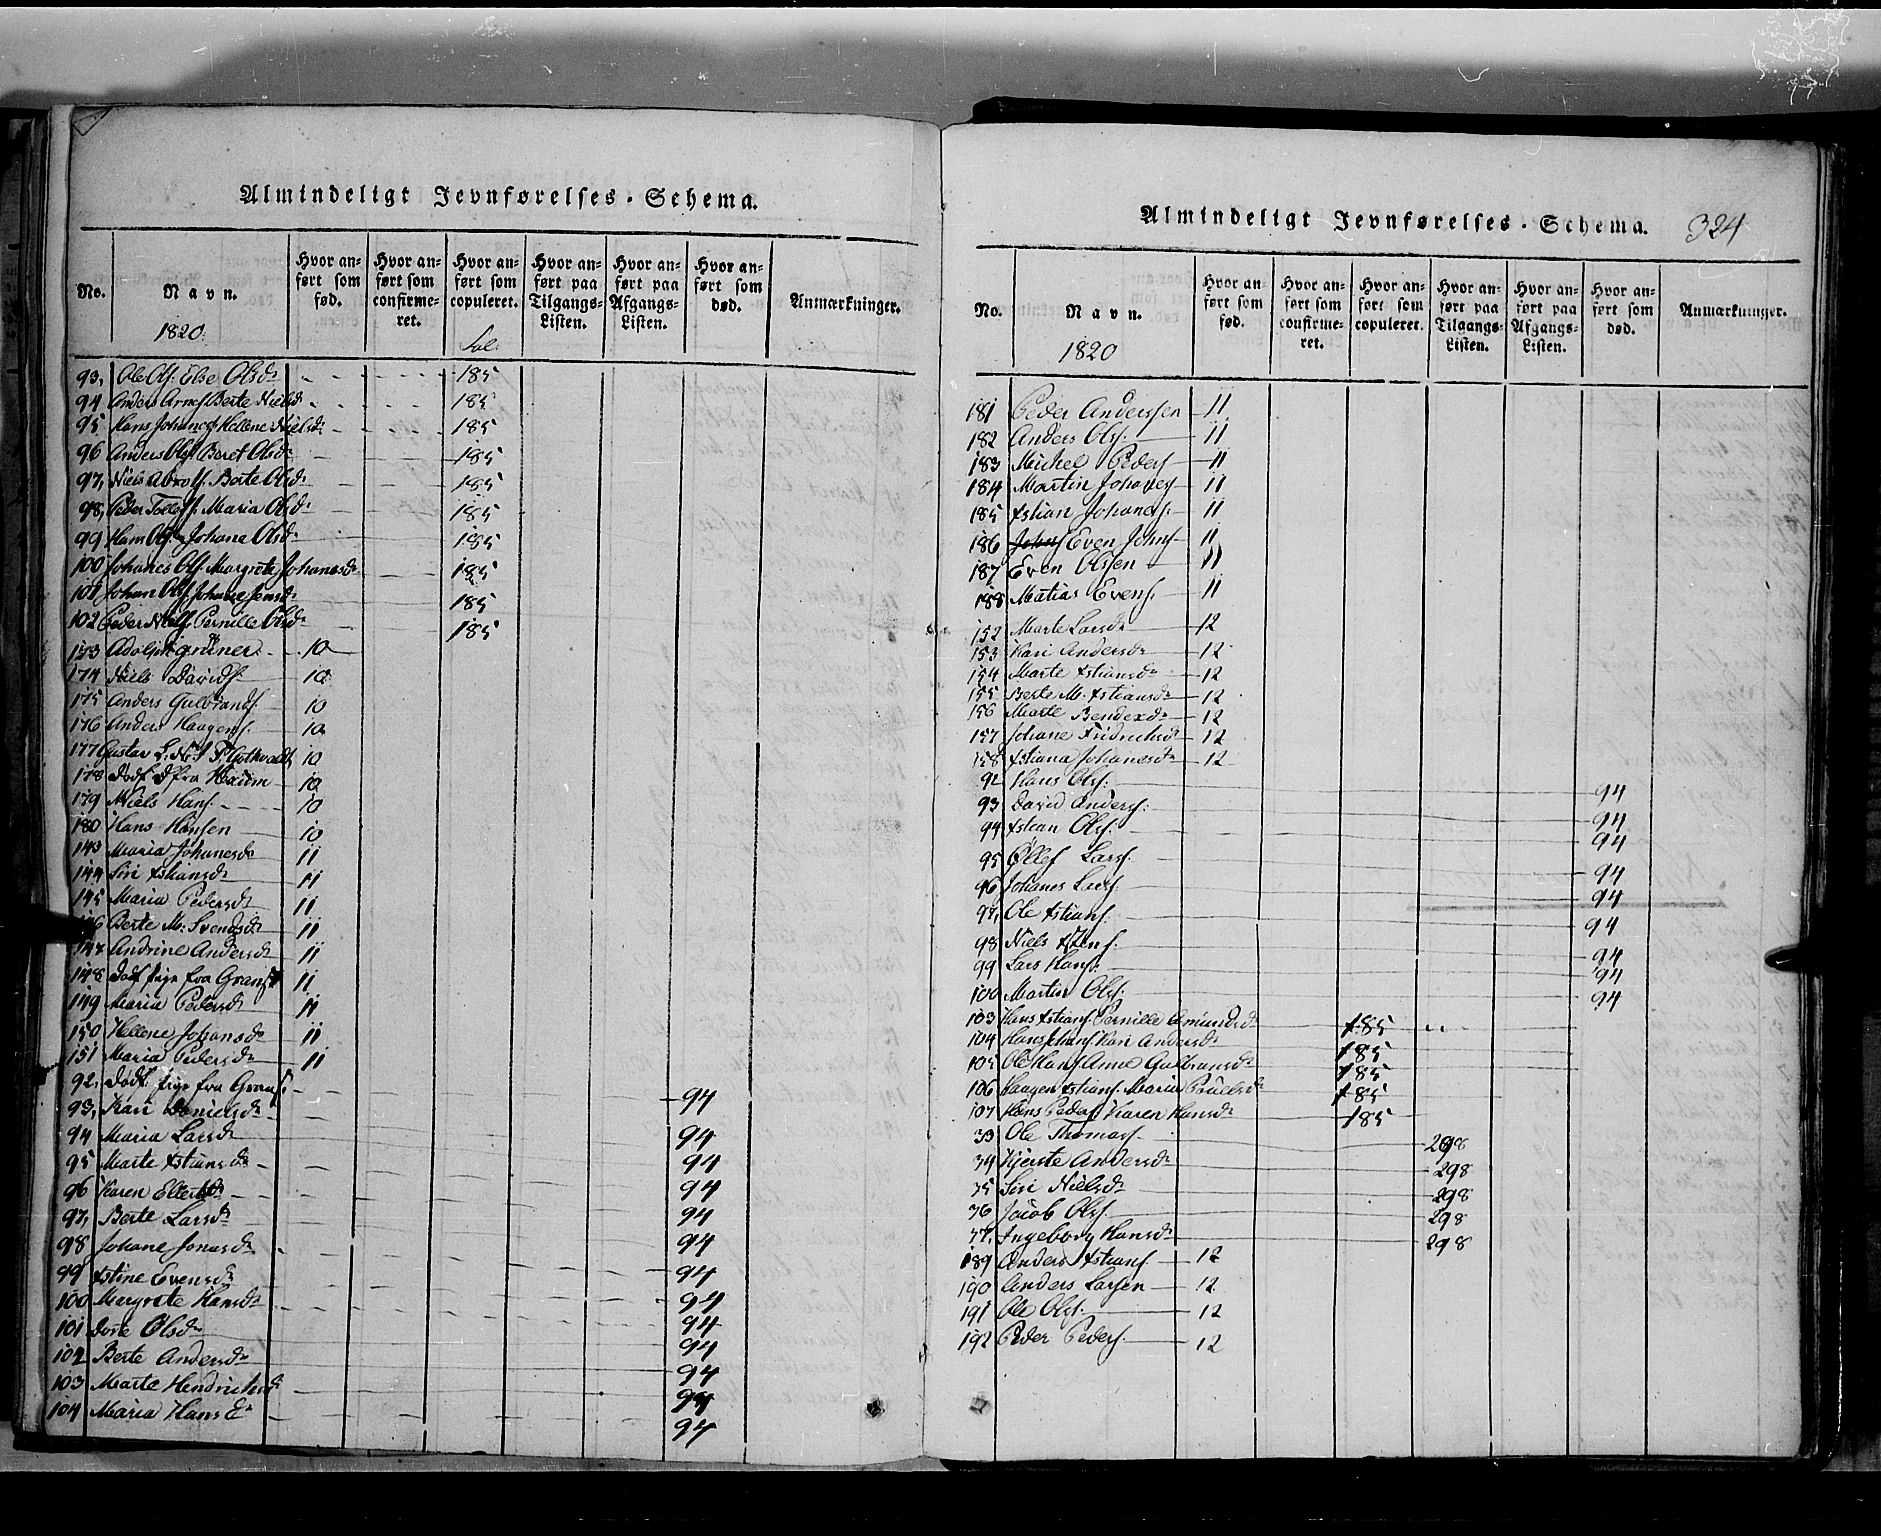 Almindeligt Jevnførelses-Schema.
No.
Navn.
1820.
Hvor anført som fød.
Hvor anført som confirmeret.
Hvor anført som copuleret.
Hvor anført paa Tilgangs-Listen.
Hvor anført paa Afgangs-Listen.
Hvor anført som død.
Anmærkninger.
93, Ole Ols: Else Olsd 185
94 Anders Arnes Berte Nielsd 185
95 Hans Johanes Hellene Nielsd 185
96 Anders Ols Beret Olsd 185
97, Niels Berte Olsd 185
98, Peder Tollefs. Maria Olsd 185
99 Hans Ols: Johana Olsd 185
100 Johanes Ols. Margrete Johanesd 185
101 Johan Ols. Johane Jensd 185
102 Peder Niels. Pernille Olsd 185
173 Adolph grüner 10
174 Niels Davids. 10
175 Anders Gulbrands. 10
176 Anders Haagens. 10
177 Gustav Gothvaldt 10
178 Dødf. D fra 10
179 Niels Hans. 10
180 Hans Hansen 10
143 Maria Johanesd 11
144 Siri Xstiansd 11
145 Maria Pedersd 11
146 Berte M: Svendsd 11
147 Andrine Andersd 11
148 Dødf pige fra 11
149 Maria Pedersd 11
150 Hellene Johansd 11
151 Maria Pedersd 11
92, Dødf: pige fra 94
93, Kari Danielsd 94
94 Maria Larsd 94
95 Marte Xstiansd 94
96 Karen 94
97, Berte Larsd 94
98 Johane Jonasd 94
99 Xstine Evensd 94
100 Margrete Hansd 94
101 Dorte Olsd 94
102 Berte Andersd 94
103 Marte Hendrichsd 94
104 Maria Hans 94
Almindeligt Jevnførelses-Schema. 324
No.
Navn.
1820
Hvor anført som fød.
Hvor anført som confirmeret.
Hvor anført som copuleret.
Hvor anført paa Tilgangs-Listen.
Hvor anført paa Afgangs-Listen.
Hvor anført som død.
Anmærkninger.
181 Peder Anderssen 11
182 Anders Ols. 11
183 Michel Peders 11
184 Martin Johanes 11
185 Xstian Johanes. 11
186 Johns Even Johns 11
187 Even Olssen 11
188 Matias Evens. 11
152 Marte Larsd 12
153 Kari Andersd 12
154 Marte Xstiansd 12
155 Berte M. Xstiansd 12
156 Marte Bendexd 12
157 Johane Fridrichsd 12
158 Xstiana Johanesd 12
92 Hans Ols. 94
93 David Anders: 94
94 Xstian Ols. 94
95 Øllef Lars. 94
96 Johanes Lars. 94
97, Ole Xstians. 94
98 Niels 94
99 Lars Hans. 94
100 Martin Ols. 94
103 Hans Xstians. Pernille Amundsd 185
104 Hans Johans Kari Andersd 185
105 Ole Hans. Anne Gulbransd 185
106 Haagen Xstians. Maria Poulsd 185
107 Hans Peders. Karen Hansd 185
33 Ole Thomass. 298
34 Kjerste Andersd 298
35 Siri Nielsd 298
36 Jacob Ols. 298
37, Ingeborg Hansd 298
189 Anders Xstians. 12
190 Anders Larsen 12
191 Ole Ols. 12
192 Peder Peders. 12